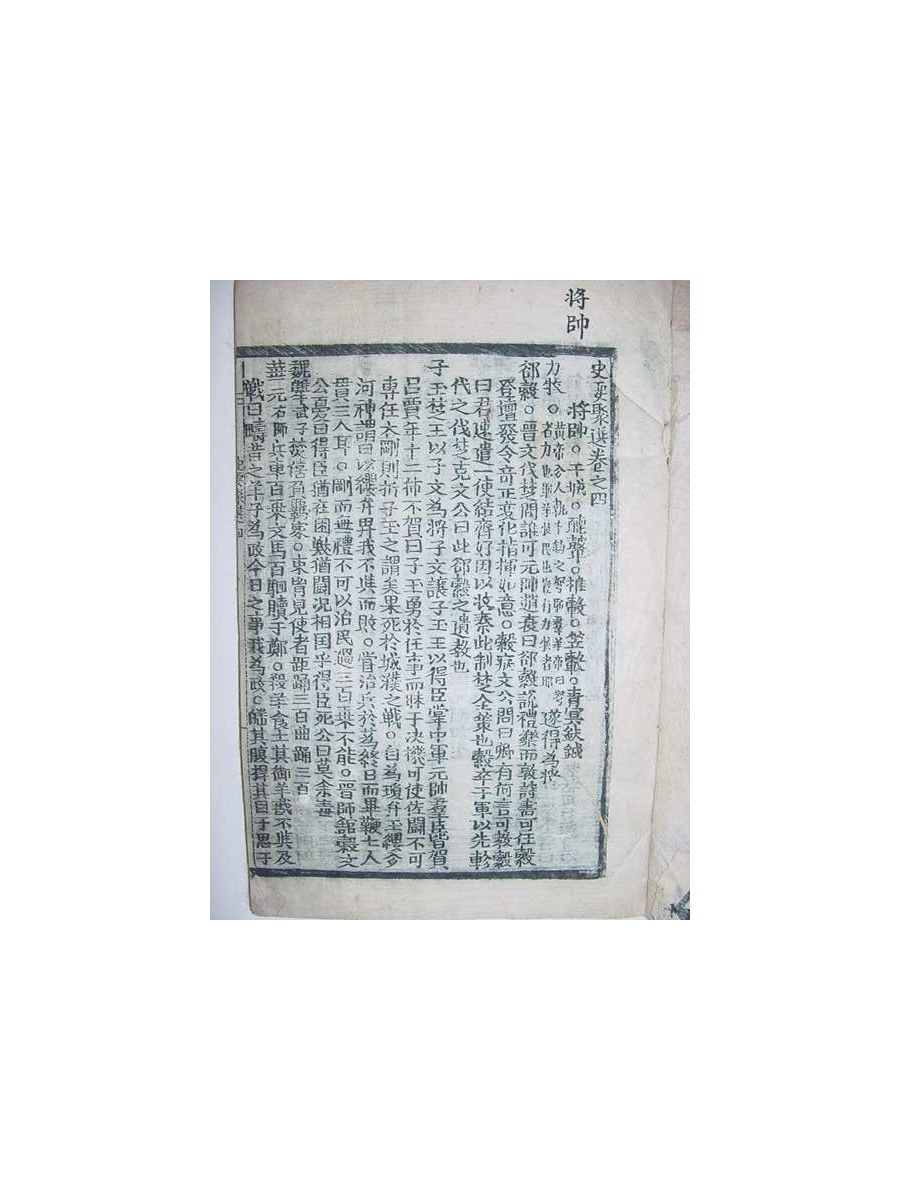 將帥
史要聚選卷之四
將帥○干城○○推轂○笠轂○青冥鈇鉞
力牧○黃帝夢人執千鈞之弩驅羣羊帝曰 遂得爲將
郤縠○晉文代楚問誰可元帥趙衰曰郤縠說禮樂而敦詩書可任縠
登壇發令奇正变化指揮如意○縠疾文公問曰卿有何言可敎縠
曰君速遣一使結齊好因以收秦此制楚全策也縠卒于軍以先軫
代之伐楚克文公曰此郤縠之遺敎也
子玉楚之王以子文爲將子文讓子玉王以得臣掌中軍元帥羣臣皆賀
呂賈年十二怖不賀曰子玉勇於任事而昧于决機可使佐闘不可
專任太剛則折子玉之謂矣果死於城濮之戰○自爲瓊弁玉纓夢
河神謂曰以纓弁畀我不與而敗○嘗治兵於爲終日而畢鞭七人
貫三人耳○剛而無禮不可以治民過三百乘不能○晉師舘穀文
公憂曰得臣猶在困獸猶闘况相囯乎得臣死公曰莫余毒
魏犨武子焚僖負羈家○束胷見使者距踊三百曲踊三百
華元右師兵車百乘文馬百駟贖于鄭○殺羊食士其御羊斟不與及
戰曰疇昔之羊子爲政今日之事我爲政○皤其腹睅其目于思于